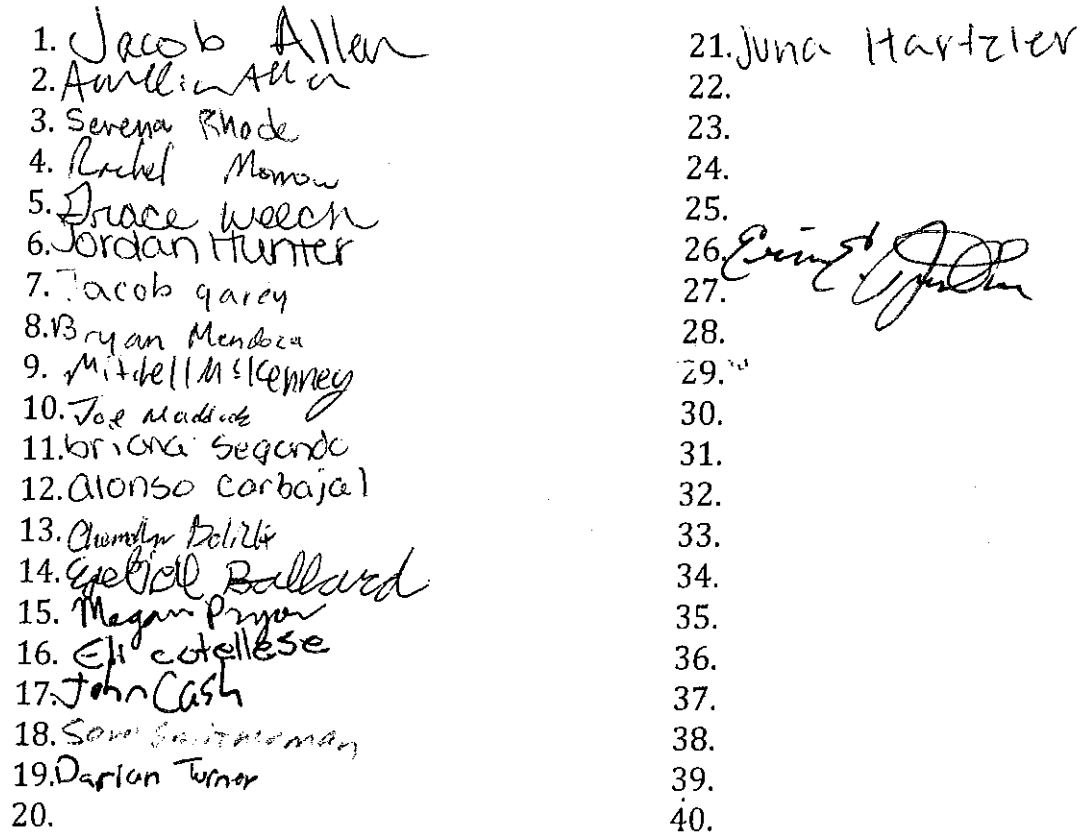 1. Jacob Allen
2. Allen
3. Serena Rhode
4. Rachel Morrow
5. Grace Welch
6. Jordan Hunter
7. Jacob garcy
8. Bryan Mendoza
9. Mitchell McKenney
10. Joe
11. briana Segundo
12. alonso carbajal
13.
14. Ballard
15. Megan Pryor
16. Eli cotellese
17. John Cash
18.
19. Darian Turner
20.
21. Juna Hartzler
22.
23.
24.
25.
26.
27.
28.
29.
30.
31.
32.
33.
34.
35.
36.
37.
38.
39.
40.